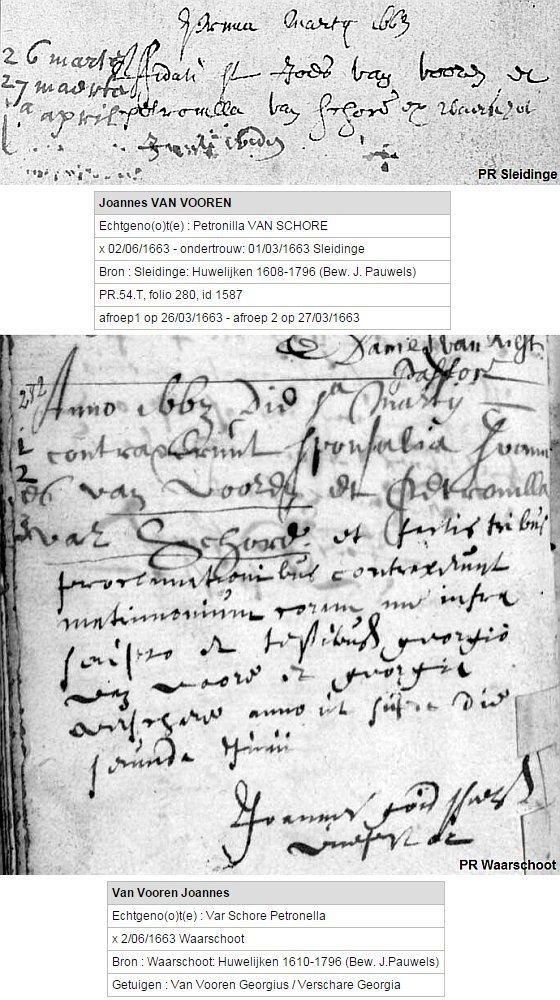 prima Martij 1663
26 marty
27 maerte
a april
ffidati st Joes van vooren et
petronilla van schore ex waerschot
PR Sleidinge
Joannes VAN VOOREN
Echtgeno(o)t(e) : Petronilla VAN SCHORE
x 02/06/1663 - ondertrouw: 01/03/1663 Sleidinge
Bron : Sleidinge: Huwelijken 1608-1796 (Bew. J. Pauwels)
PR.54.T, folio 280, id 1587
afroep1 op 26/03/1663 - afroep 2 op 27/03/1663
Daniel van
Pastor
Anno 1663 Die 1a Martij
contraxerunt sponsalia Joann
es van Vooren et Petronilla
van Schore et factis tribus
proclamationibus contraxerunt
matrimonium coram me infra
scripto et testibus georgio
van voore et georgia
verschare anno ut supra die
secunda Junij
Joannes
PR Waarschoot
Van Vooren Joannes
Echtgeno(o)t(e) : Var Schore Petronella
x 2/06/1663 Waarschoot
Bron : Waarschoot: Huwelijken 1610-1796 (Bew. J.Pauwels)
Getuigen : Van Vooren Georgius / Verschare Georgia